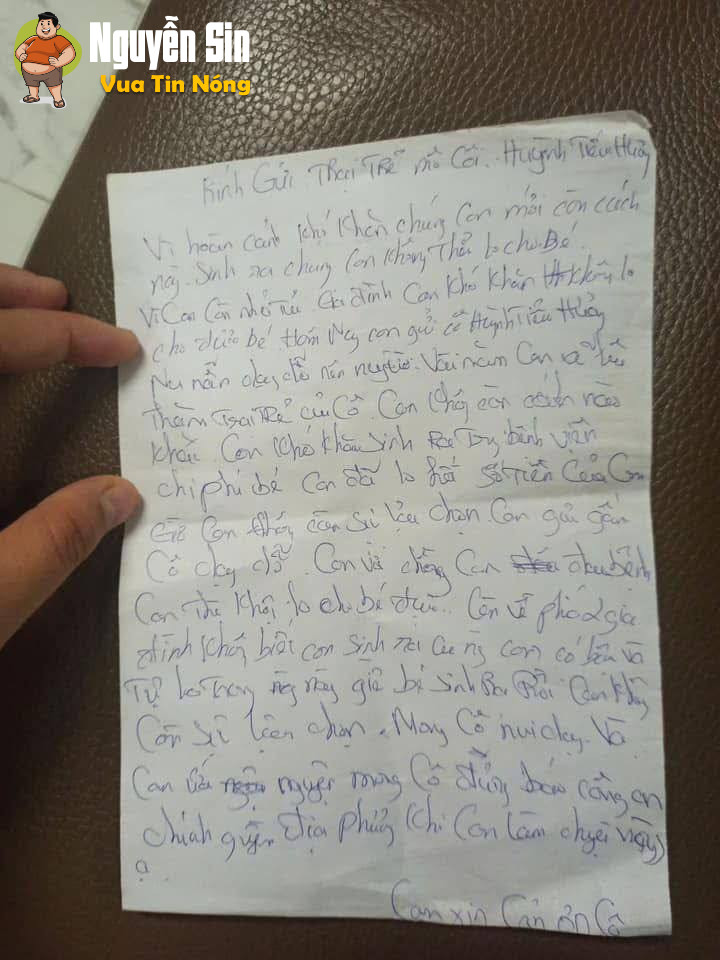 Nguyễn Sin
Vua Tin Nóng
Kính Gửi Trại Trẻ mồ Côi. Huỳnh Tiểu Hưởng
Vì hoàn cảnh khó khăn chúng Con mới còn cách
này. Sinh ra chúng Con không Thể lo cho Bé.
Vì Con Còn nhỏ Gia đình Con khó khăn không lo
cho được bé Hôm Nay con gửi cô Huỳnh Tiểu Hưởng
nuôi nấn dạy dỗ nên người. Vài năm Con sẽ
Thăm Trại Trẻ của Cô. Con không còn cách nào
khác. Con khó khăn sinh bệnh viện
chi phí bé Con đã lo hết số tiền Của Con
Giờ Con không còn sự lựa chọn Con gửi gắm
Cô dạy dỗ. Con và chồng Con đau bệnh
Con lo cho bé được. Còn về phía 2 gia
đình không biết con sinh con có bầu và
Tự lo trong này giờ bé sinh Ra Rồi Con không
Còn sự lựa chọn. Mong Cô nuôi dạy. Và
Con nguyện mong Cô đừng báo công an
chính quyền địa phương khi Con làm chuyện này
ạ
Con xin Cản ơn Cô